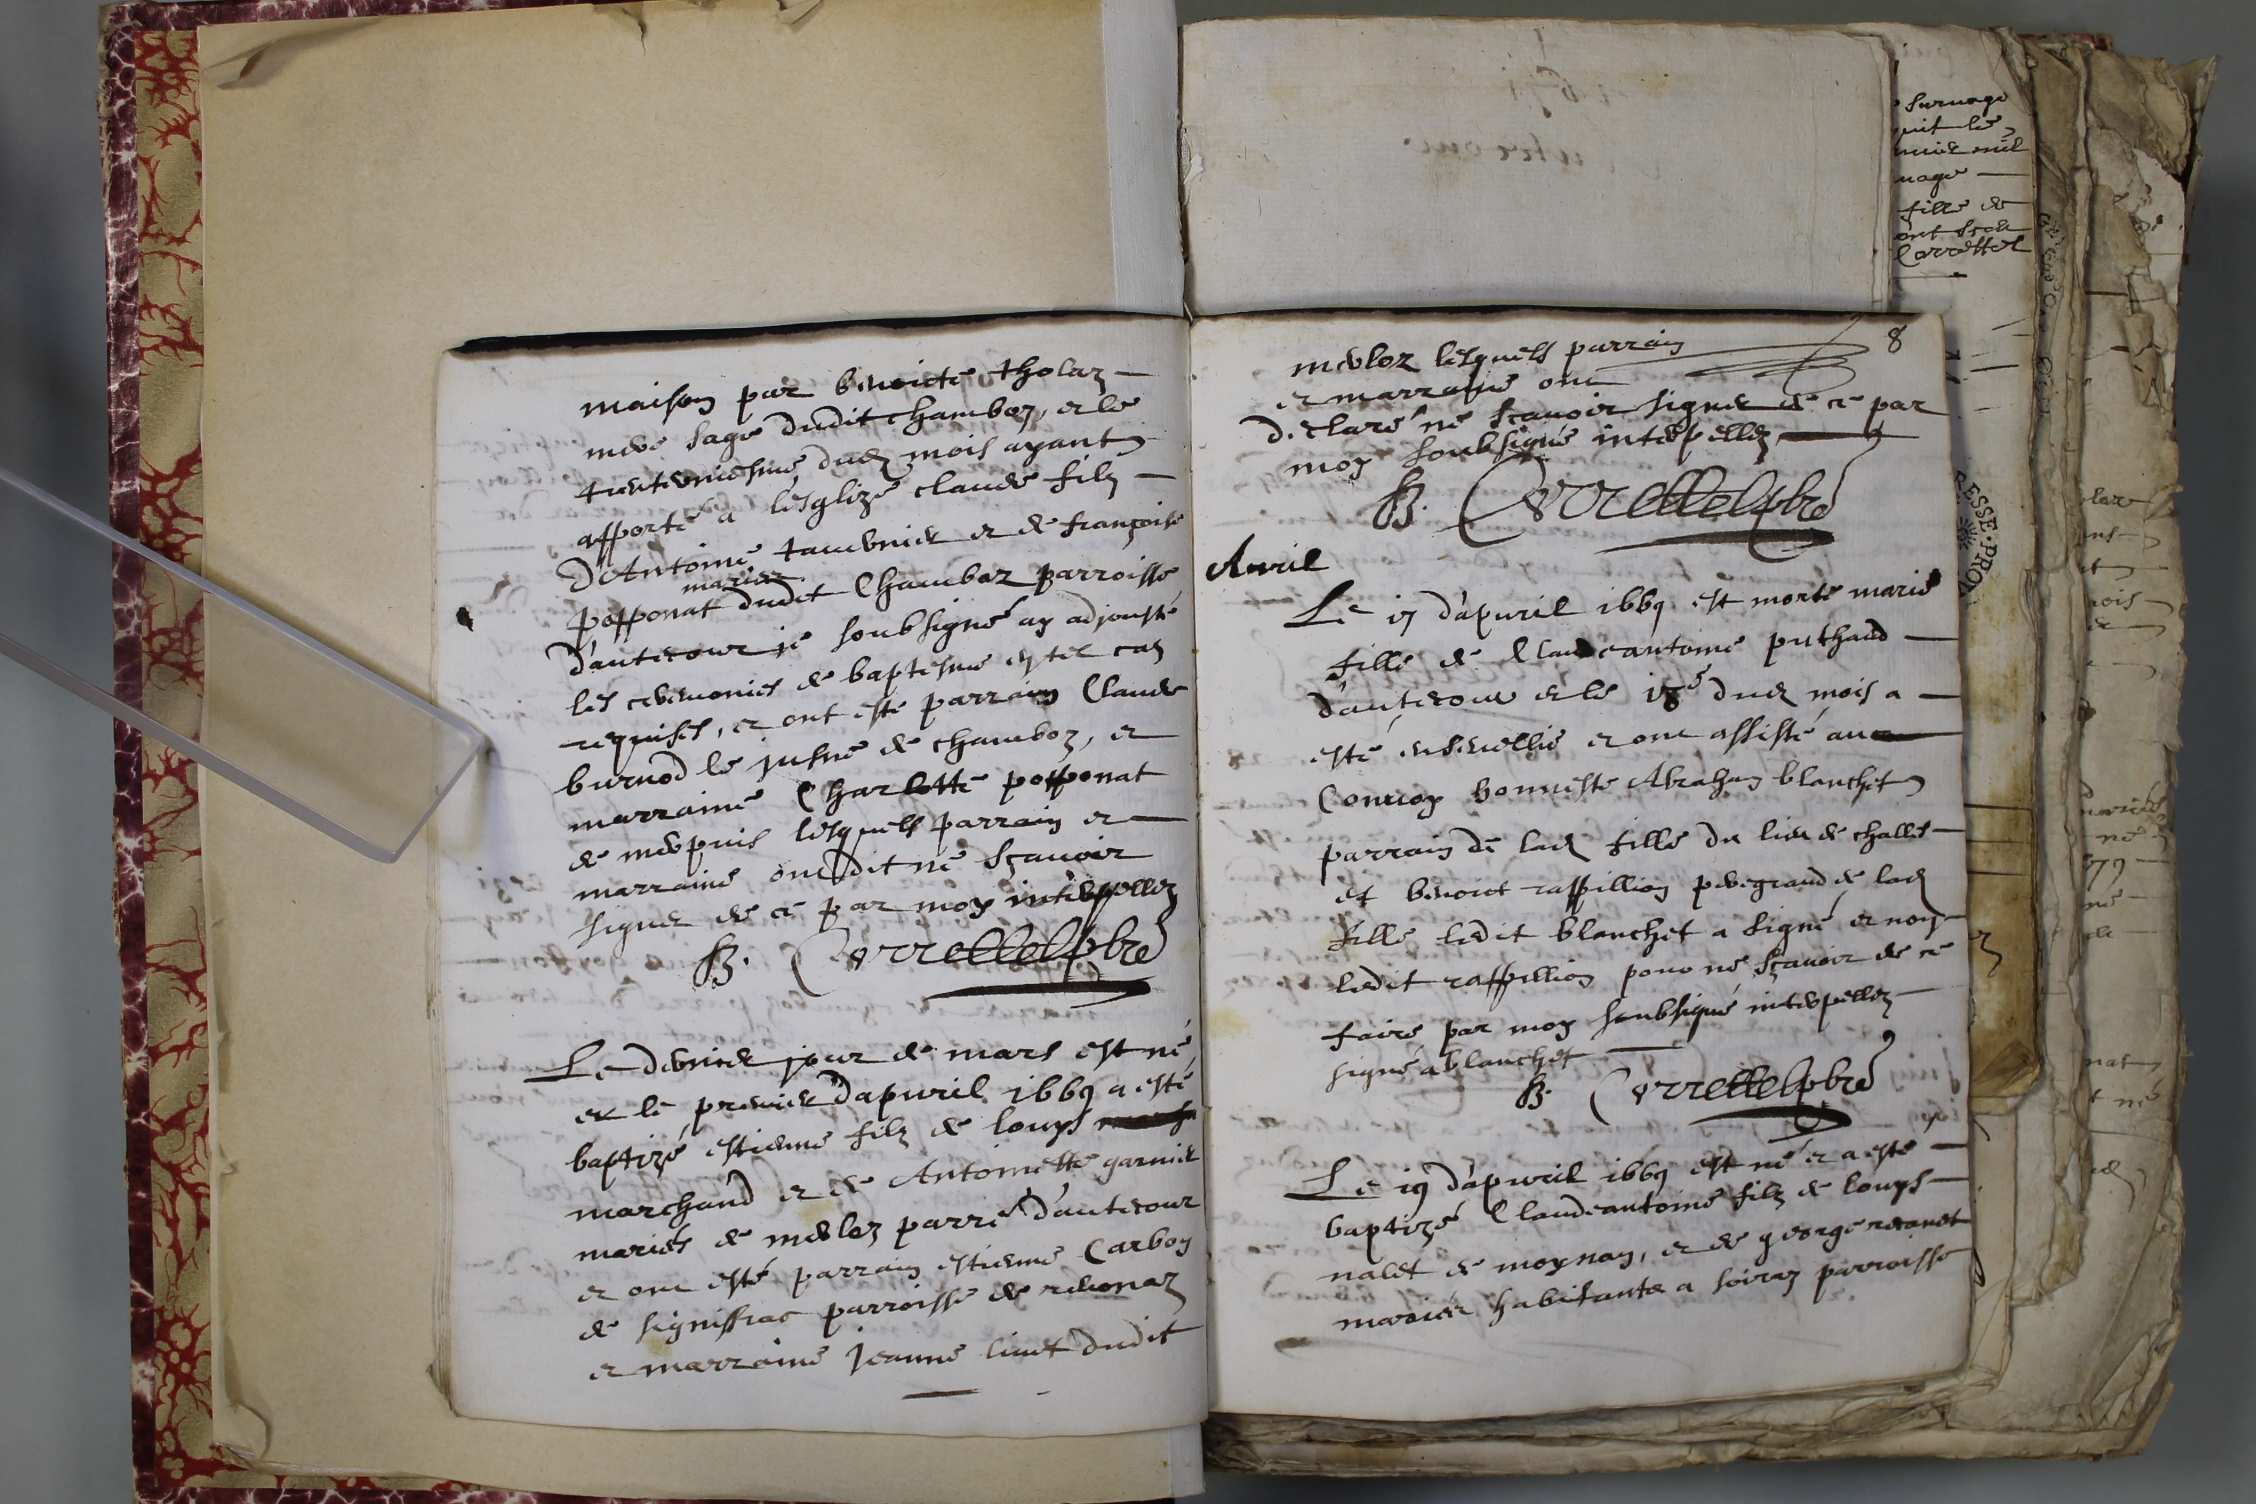 maison par benoicte tholaz
mere sage dudit chamboz, et le
trenteuniesme dud mois ayant
apporté a l'esglize claude filz
D'Antoine et de françoise
popponat mariez dudit Chamboz parroisse
d'autecour je soubsigné ay adjousté
les ceremonies de baptesme en tel cas
requises, et ont esté parrain Claude
burnod le jusne de chamboz, et
marraine Charlotte popponat
de lesquels parrain et
marraine ont dit ne sçavoir
signer de ce par moy interpellez
B. Correttel pbre
Le dernier jour de mars est né,
et le premier d'apvril 1669 a esté
baptizé estienne filz de louys
marchand et de Antoinette garnier
mariés de meuloz parre d'autecour
et ont esté parrain estienne Carbon
de signissiac parroisse de revonaz
et marraine Jeanne livet dudit
8
meuloz lesquels parrain
et marraine ont
declaré ne sçavoir signer de ce par
moy soubsigné interpellez
B. Correttel pbre
Avril
Le 17 d'apvril 1669 est morte marie
fille de Claudeantoine puthaud
d'autecour et le 18e dud mois a
esté ensevellie et ont assisté au
Convoy honneste Abraham blanchet
parrain de lad fille du lieu de challes
et benoict raffillion peregrand de lad
fille ledit blanchet a signé et non
ledit raffillion pour ne sçavoir de ce
faire par moy soubsigné interpellez
signé a blanchet
B. Correttel pbre
Le 19 d'apvril 1669 est né et a esté
baptizé Claudeantoine filz de louys
nalet de moynan, et de george
mariés habitants a soiraz parroisse
survage
fille de
ont sceu
Correttel
ESSE·PROV